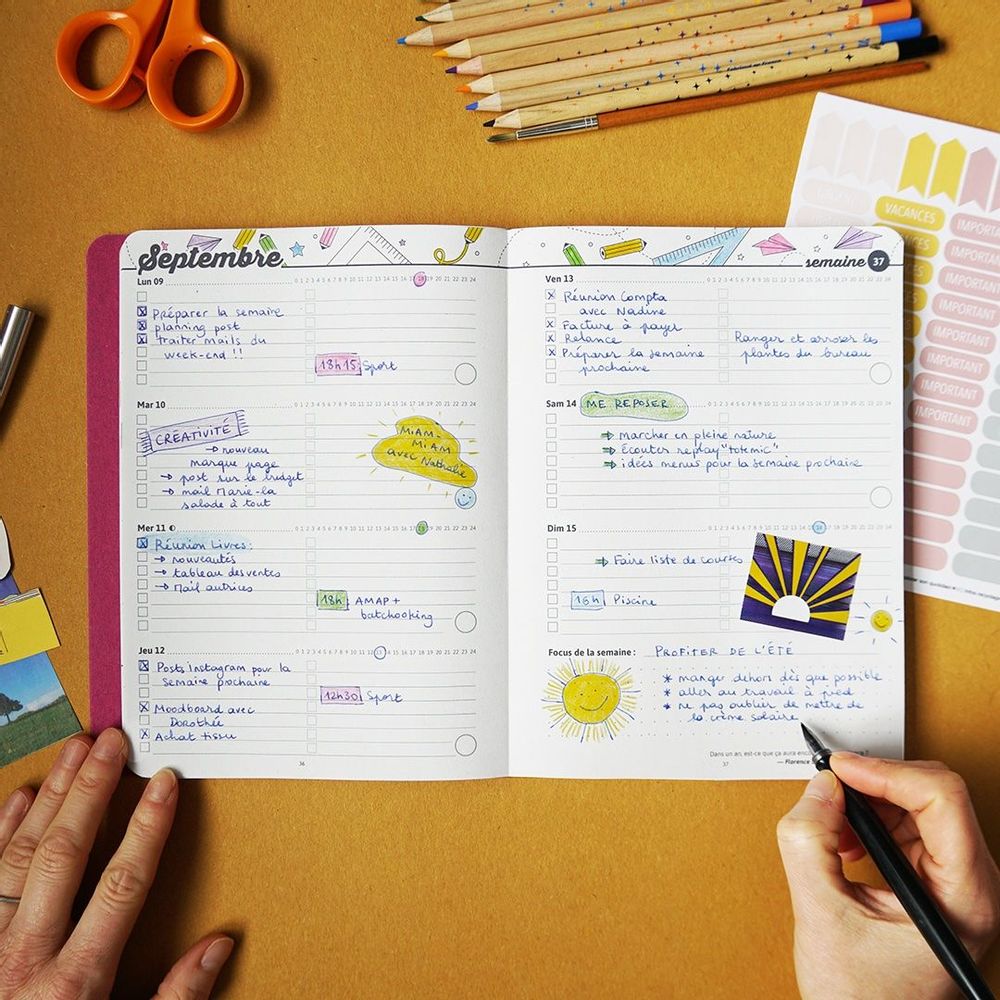 Fabriqué en France
VACANCES
IMPORTANT
IMPORTANT
IMPORTANT
IMPORTANT
IMPORTANT
IMPORTANT
IMPORTANT
IMPORTANT
Septembre
Lun 09
0 1 2 3 4 5 6 7 8 9 10 11 12 13 14 15 16 17 18 19 20 21 22 23 24
Préparer la semaine
planning post
traiter mails du
week-end !!
18h15 Sport
Mar 10
0 1 2 3 4 5 6 7 8 9 10 11 12 13 14 15 16 17 18 19 20 21 22 23 24
CRÉATIVITÉ
→ nouveau
marque page
→ post sur le budget
→ mail Marie-la
salade à tout
MIAM-
MIAM
avec Nathalie
Mer 11
0 1 2 3 4 5 6 7 8 9 10 11 12 13 14 15 16 17 18 19 20 21 22 23 24
Réunion Livres:
→ nouveautés
→ tableau des ventes
→ Mail autrices
18h AMAP +
batchcooking
Jeu 12
0 1 2 3 4 5 6 7 8 9 10 11 12 13 14 15 16 17 18 19 20 21 22 23 24
Posts instagram pour la
semaine prochaine
12h30 Sport
Moodboard avec
Dorothée
Achat tissu
36
semaine 37
Ven 13
0 1 2 3 4 5 6 7 8 9 10 11 12 13 14 15 16 17 18 19 20 21 22 23 24
Réunion Compta
avec Nadine
Facture à payer
Relance
Préparer la semaine
prochaine
Ranger et arroser les
plantes du bureau
Sam 14
ME REPOSER
0 1 2 3 4 5 6 7 8 9 10 11 12 13 14 15 16 17 18 19 20 21 22 23 24
⇒ marcher en pleine nature
⇒ écouter replay "totemic"
⇒ idées menus pour la semaine prochaine
Dim 15
0 1 2 3 4 5 6 7 8 9 10 11 12 13 14 15 16 17 18 19 20 21 22 23 24
⇒ Faire liste de courses
16h Piscine
Focus de la semaine : PROFITER DE L'ÉTÉ
* manger dehors dès que possible
* aller au travail à pied
* ne pas oublier de mettre de
la crème solaire
Dans un an, est-ce que ça aura
— Florence
37